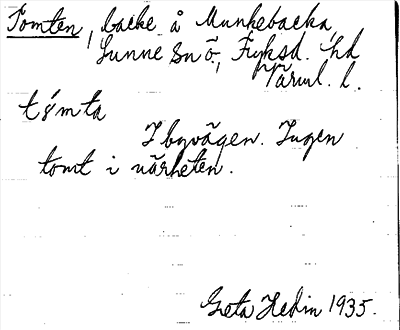 Tomten, backe å Munkebacka,
Sunne sn ö., Fryksd. hd
Värml. l.
tømta
I byvägen. Ingen
tomt i närheten.
Greta Hedin 1935.